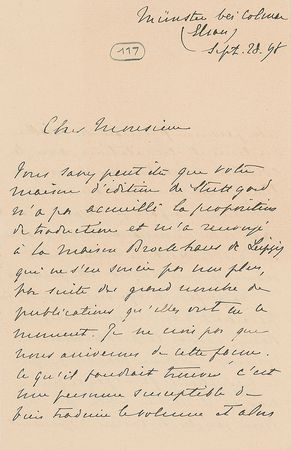 Münster bei Colmar
(Elsass)
Sept. 28. 98
117
Cher Monsieur
Vous savez peut être que votre
maison d'édition de Stuttgard
n'a pas accueilli la proposition
de traduction et m'a renvoyé
à la maison Brockhaus de Leipzig
qui ne s'en soucie pas non plus,
par suite du grand nombre de
publications qu'elles ont en ce
moment. Je ne crois pas que
nous arriverons de cette façon.
Ce qu'il faudrait trouver c'est
une personne susceptible de
bien traduire le volume et alors